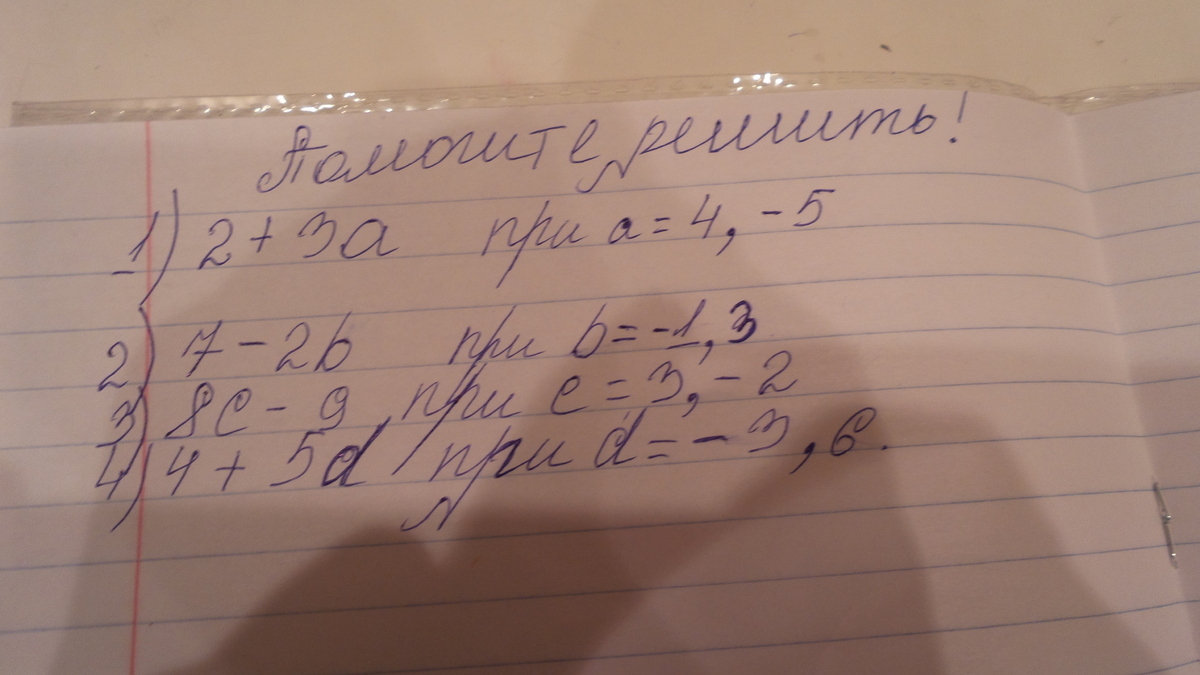 Помогите решить!
1) 2 + 3a при a = 4, -5
2) 7 - 2b при b = -1, 3
3) 8c - 9 при c = 3, -2
4) 4 + 5d при d = - 3, 6.